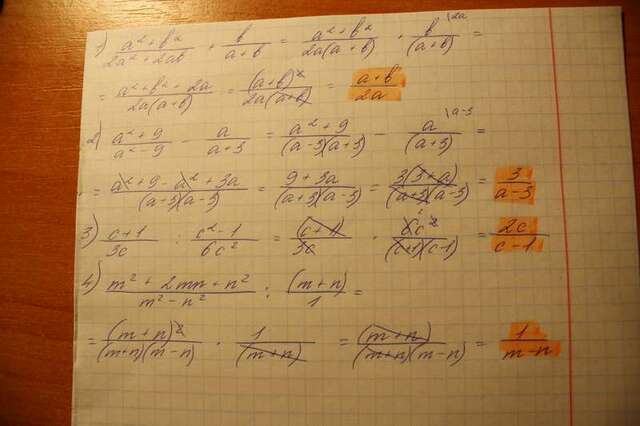 1) (a² + b²)/(2a² + 2ab) + b/(a+b) = (a² + b²)/(2a(a+b)) + b/(a+b) |2a =
= (a² + b² + 2a)/(2a(a+b)) = (a+b)²/(2a(a+b)) = (a+b)/(2a)
2) (a² + 9)/(a² - 9) - a/(a+3) = (a² + 9)/((a-3)(a+3)) - a/(a+3) |a-3 =
= (a² + 9 - a² + 3a)/((a+3)(a-3)) = (9 + 3a)/((a+3)(a-3)) = 3(3+a)/((a+3)(a-3)) = 3/(a-3)
3) (c+1)/(3c) : (c² - 1)/(6c²) = (c+1)/(3c) · 6c²/((c+1)(c-1)) = 2c/(c-1)
4) (m² + 2mn + n²)/(m² - n²) : (m+n)/1 =
= (m+n)²/((m+n)(m-n)) · 1/(m+n) = (m+n)/((m+n)(m-n)) = 1/(m-n)